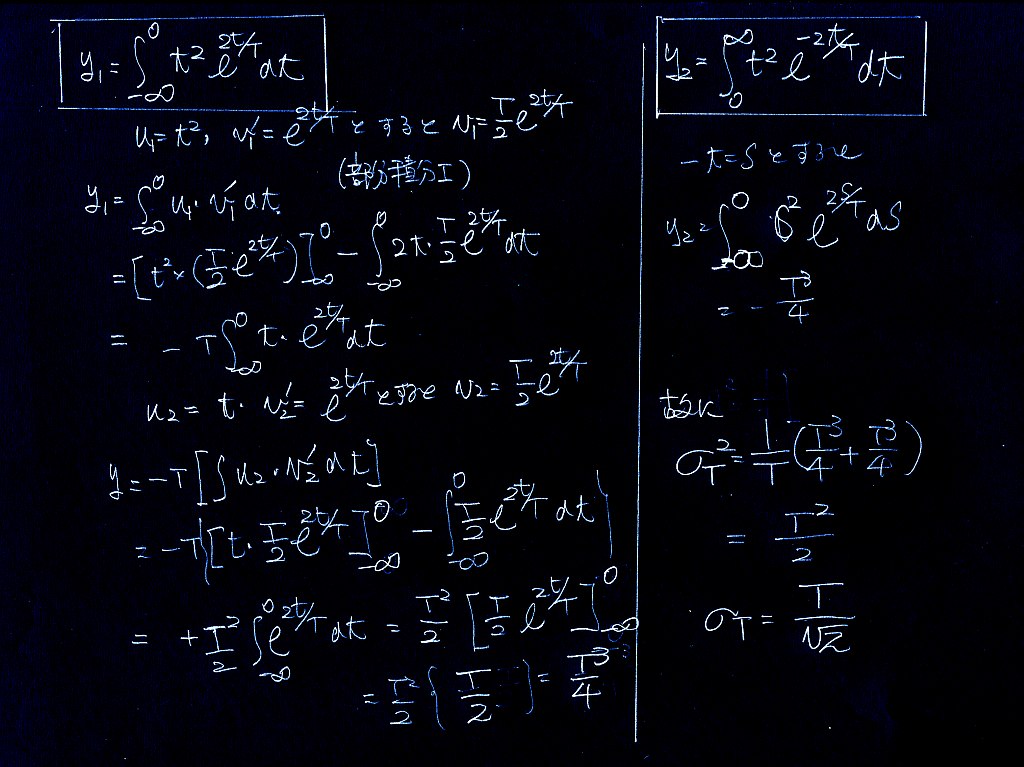 y₁ = ∫_{-∞}^{0} t² e^{2t/T} dt
u₁ = t², v₁' = e^{2t/T} とすると v₁ = T/2 e^{2t/T}
(部分積分I)
y₁ = ∫_{-∞}^{0} u₁・v₁' dt.
= [t² × (T/2 e^{2t/T})]_{-∞}^{0} − ∫_{-∞}^{0} 2t・T/2 e^{2t/T} dt
= − T∫_{-∞}^{0} t・e^{2t/T} dt
u₂ = t・v₂' = e^{2t/T} とすると v₂ = T/2 e^{2t/T}
y = −T [∫u₂・v₂' dt]
= −T{[t・T/2 e^{2t/T}]_{-∞}^{0} − ∫_{-∞}^{0} T/2 e^{2t/T} dt}
= + T²/2 ∫_{-∞}^{0} e^{2t/T} dt = T²/2 [T/2 e^{2t/T}]_{-∞}^{0}
= T²/2 {T/2} = T³/4
y₂ = ∫_{0}^{∞} t² e^{-2t/T} dt
−t = S とすると
y₂ = ∫_{-∞}^{0} S² e^{2S/T} dS
= − T³/4
故に
σ_T² = 1/T (T³/4 + T³/4)
= T²/2
σ_T = T/√2